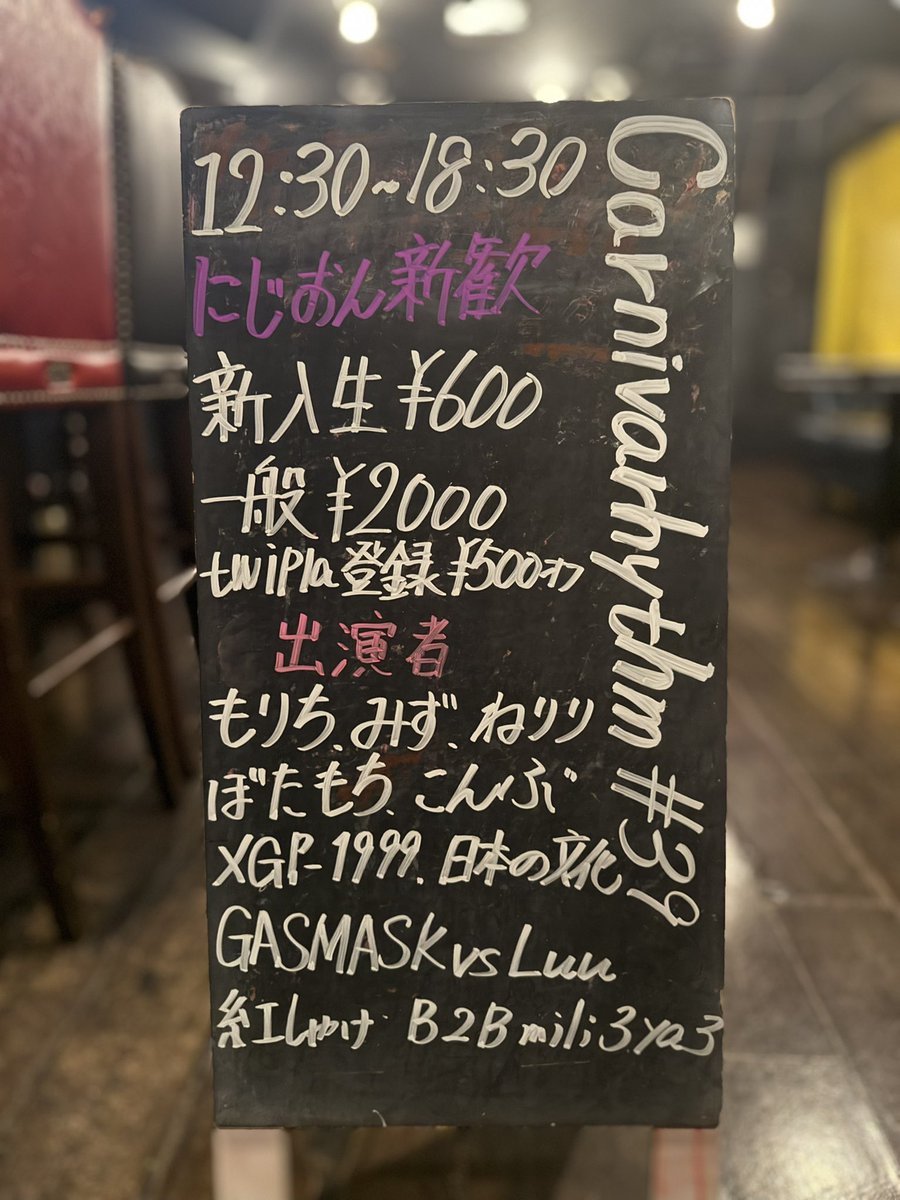 Carnivarhythm #39
12:30~18:30
にじおん新歓
新入生 ¥600
一般 ¥2000
twipla登録 ¥500オフ
出演者
もりち、みず、ねりり
ぼたもち、こんぶ
XGP-1999、日本の文化
GASMASK vs Luu
紅しゃけ B2B mili3ya3